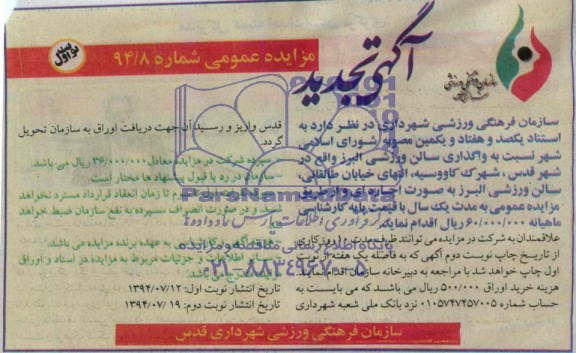 آگهی تجدید
مزایده عمومی شماره ۹۴/۸
نوبت اول
سازمان فرهنگی ورزشی شهرداری در نظر دارد به
استناد یکصد و هفتاد و یکمین مصوبه شورای اسلامی
شهر نسبت به واگذاری سالن ورزشی البرز واقع در
شهر قدس، شهرک کاووسیه، انتهای خیابان طالقانی،
سالن ورزشی البرز به صورت اجاره ای از طریق
مزایده عمومی به مدت یک سال با قیمت پایه کارشناسی
ماهیانه ۶۰/۰۰۰/۰۰۰ ریال اقدام نماید.
علاقمندان به شرکت در مزایده می توانند ظرف مدت ۱۰ روز کاری
از تاریخ چاپ نوبت دوم آگهی که به فاصله یک هفته از نوبت
اول چاپ خواهد شد با مراجعه به دبیرخانه سازمان اقدام نمایند.
هزینه خرید اوراق ۵۰۰/۰۰۰ ریال می باشد که می بایست به
حساب شماره ۰۱۰۵۷۴۷۴۵۷۰۰۵ نزد بانک ملی شعبه شهرداری
قدس واریز و رسید آن جهت دریافت اوراق به سازمان تحویل
گردد.
سپرده شرکت در مزایده معادل ۳۶/۰۰۰/۰۰۰ ریال می باشد.
سازمان در رد یا قبول پیشنهادها مختار است.
تا زمان انعقاد قرارداد مسترد نخواهد
شد و در صورت انصراف سپرده به نفع سازمان ضبط خواهد
شد.
به عهده برنده مزایده می باشد.
سایر اطلاعات و جزئیات مربوط به مزایده در اسناد و اوراق
تاریخ انتشار نوبت اول: ۱۳۹۴/۰۷/۱۲
تاریخ انتشار نوبت دوم: ۱۳۹۴/۰۷/۱۹
سازمان فرهنگی ورزشی شهرداری قدس
ParsNamadData
فرآوری اطلاعات پارس نماد داده ها
پایگاه اطلاع رسانی مناقصه و مزایده
۰۲۱-۸۸۳۴۹۶۷۰-۵